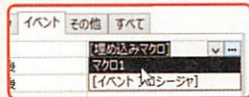 イベント その他 すべて
[埋め込みマクロ]
マクロ1
[イベント プロシージャ]